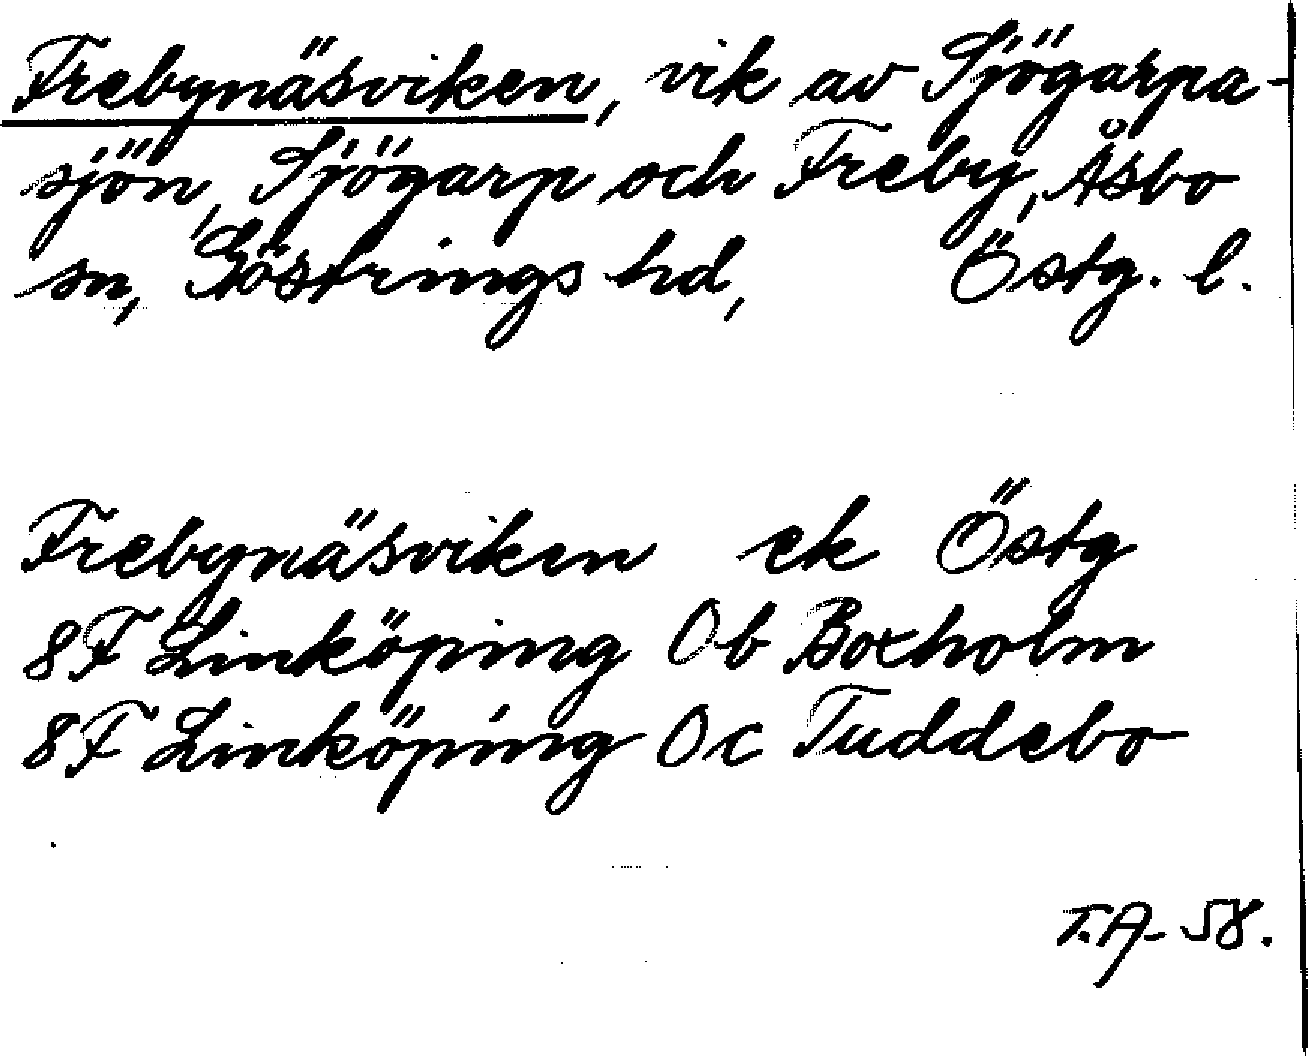 Frebynäsviken, vik av Sjögarpa-
sjön, Sjögarp och Freby, Åsbo
sn, Göstrings hd, Östg. l.
Frebynäsviken ek Östg
8F Linköping Ob Boxholm
8F Linköping Oc Tuddebo
T.A- 58.